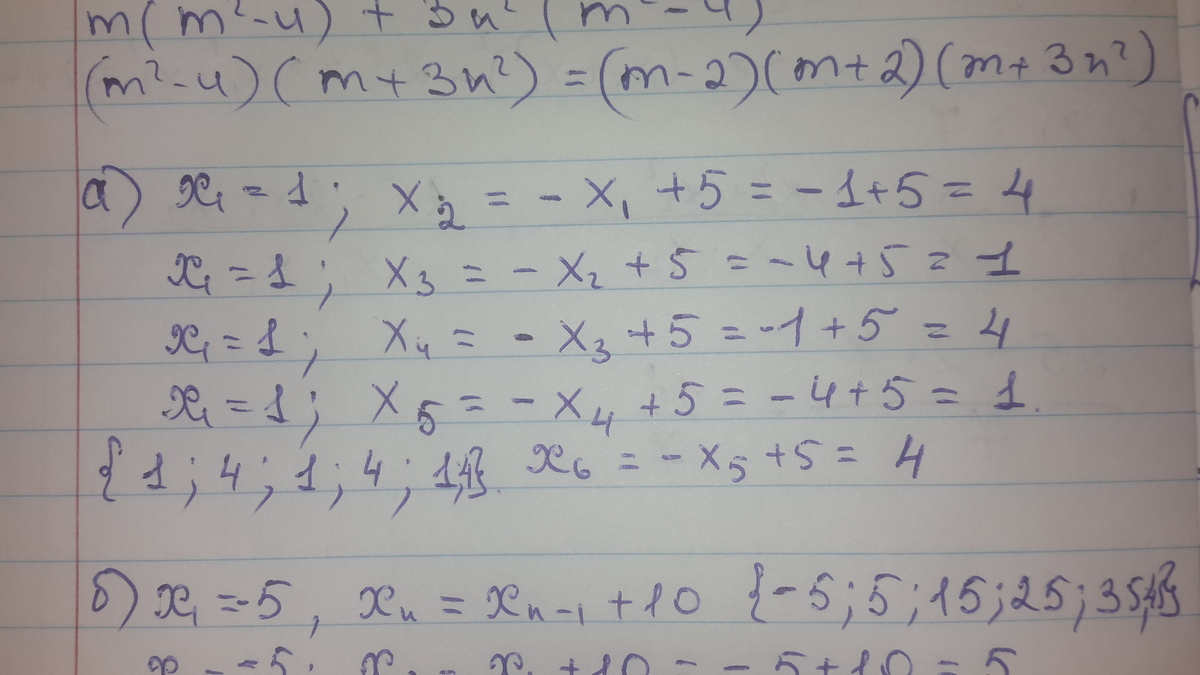 m(m²-4) + 3n²(m²-4)
(m²-4)(m+3n²) = (m-2)(m+2)(m+3n²)
а) x₁ = 1; x₂ = -x₁ + 5 = -1+5 = 4
x₁ = 1; x₃ = -x₂ + 5 = -4+5 = 1
x₁ = 1; x₄ = -x₃ + 5 = -1+5 = 4
x₁ = 1; x₅ = -x₄ + 5 = -4+5 = 1.
{1; 4; 1; 4; 1;4}. x₆ = -x₅ + 5 = 4
б) x₁ = -5, xₙ = xₙ₋₁ + 10 {-5; 5; 15; 25; 35;45}
= -5; + 10 = -5+10 = 5